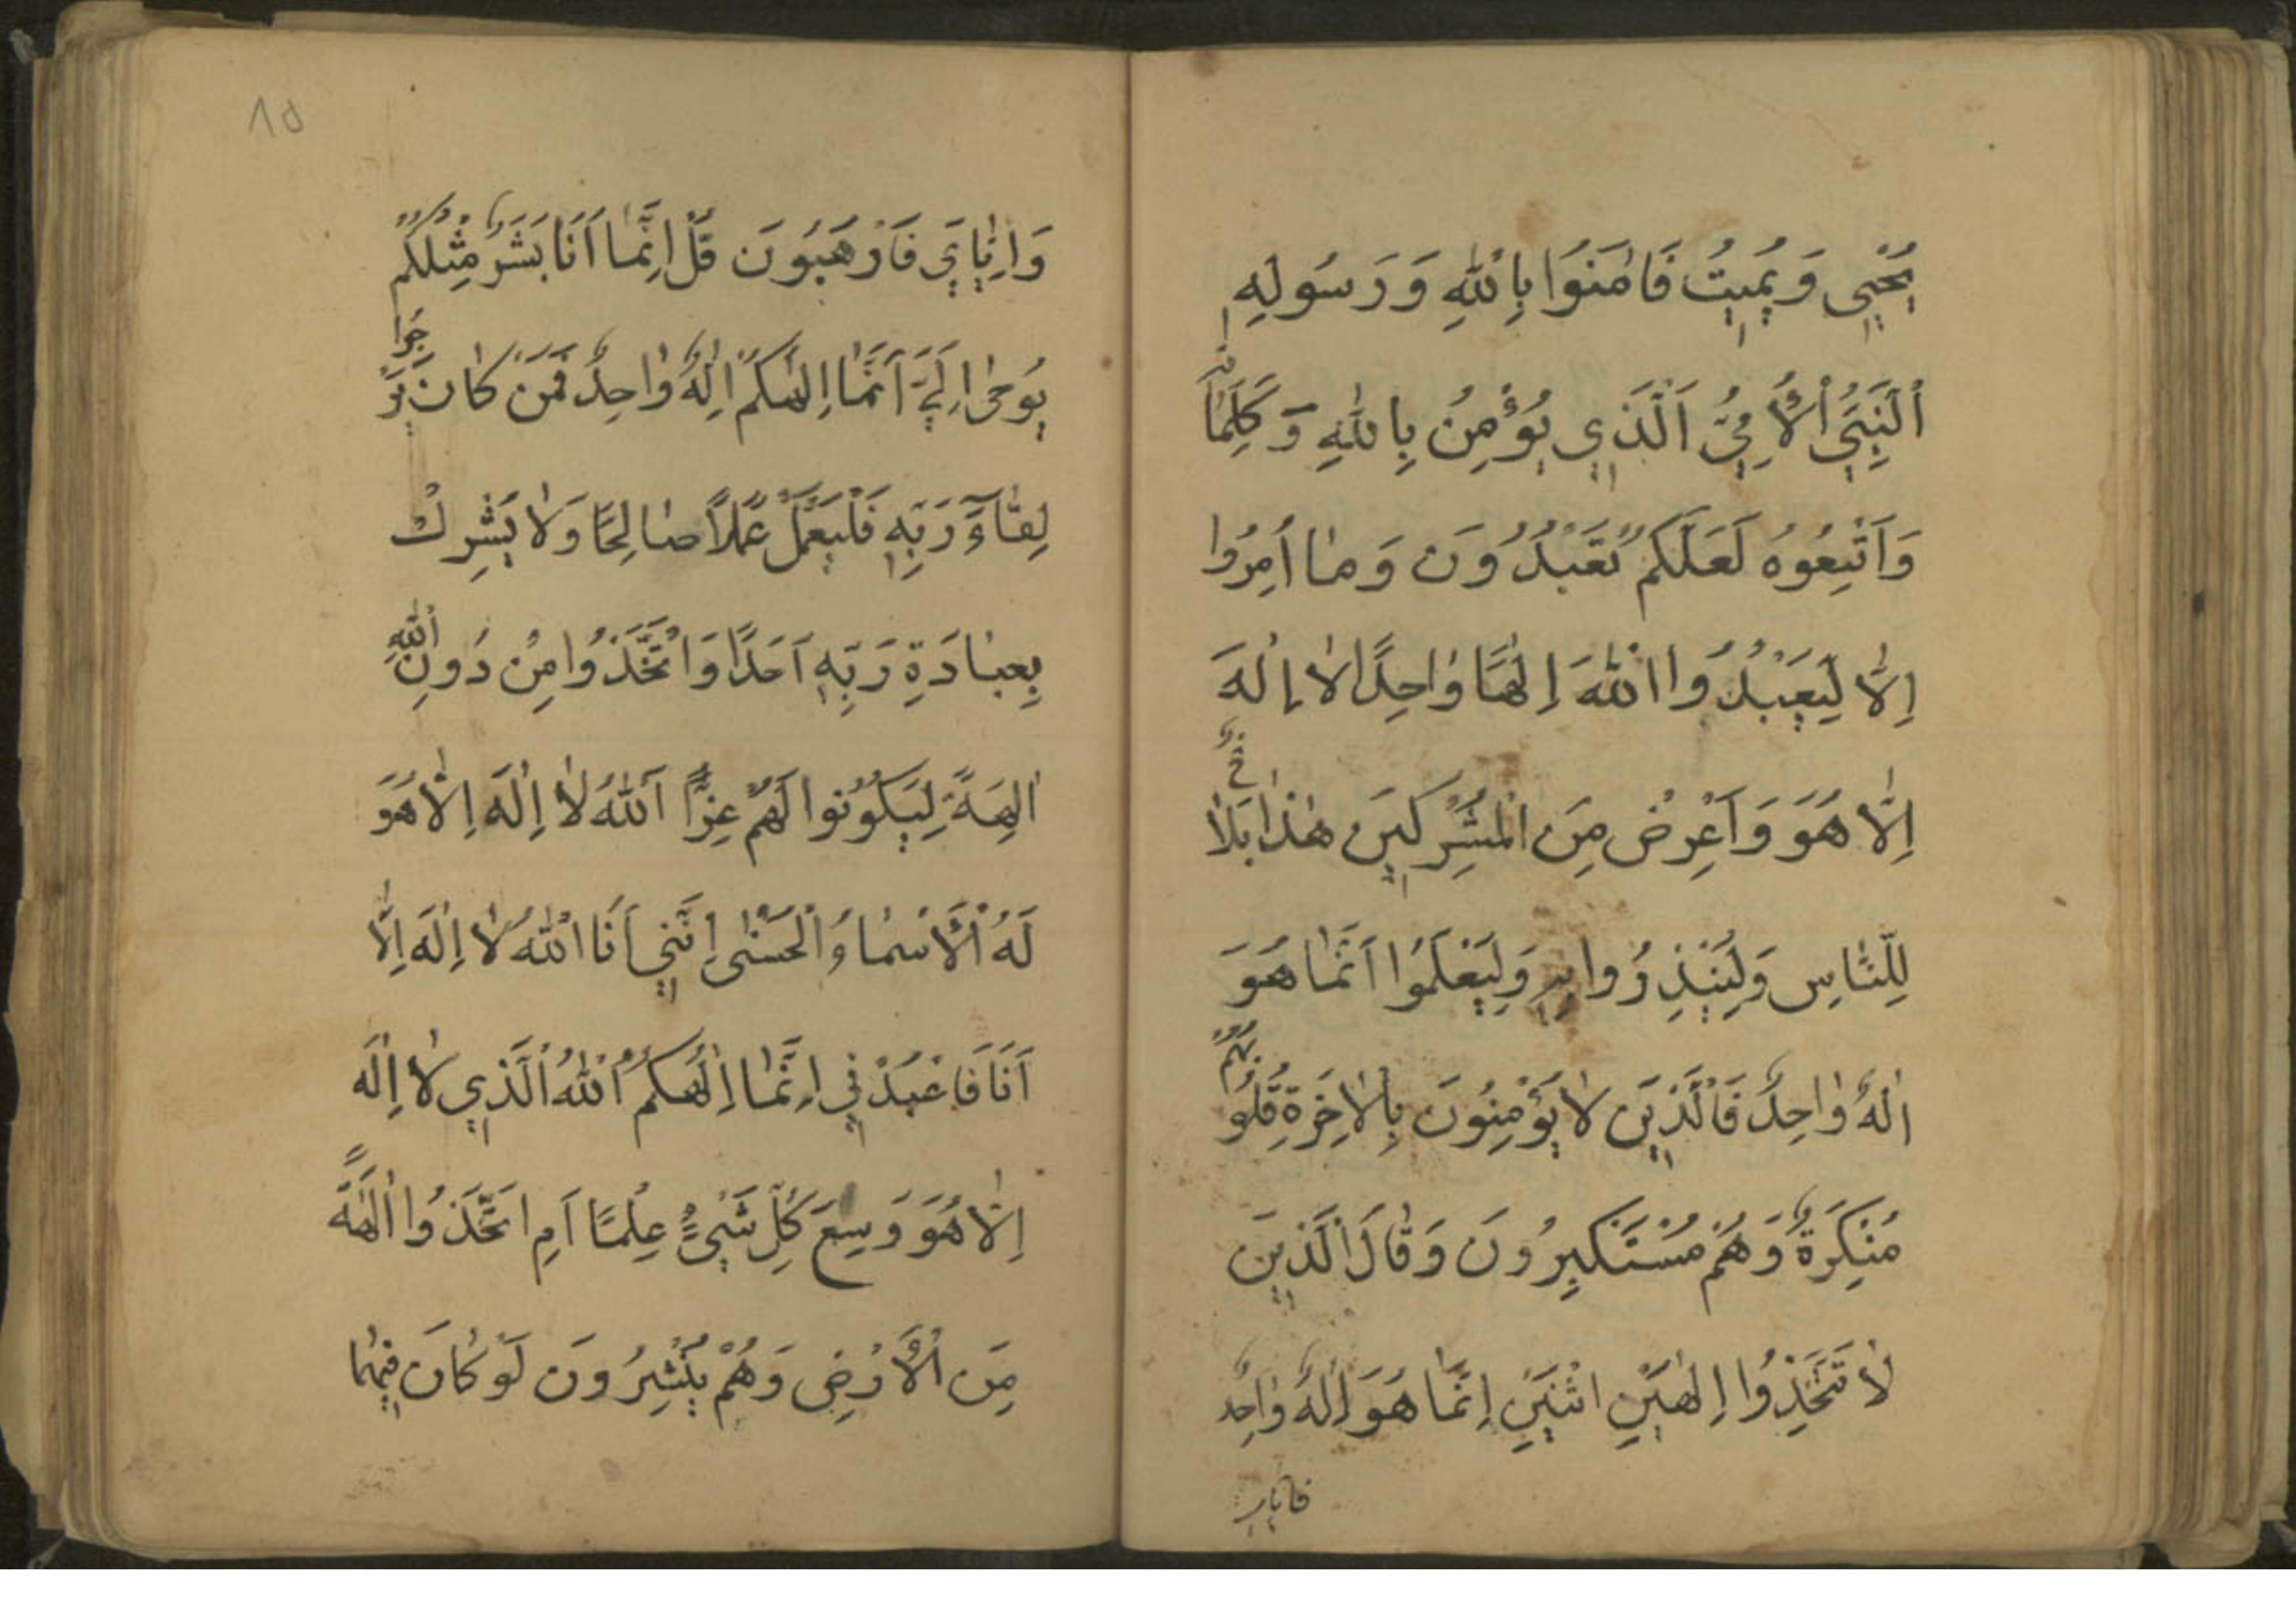 يُحْيِي وَيُمِيتُ فَاٰمَنُوا بِاللّٰهِ وَرَسُولِهِ
اَلنَّبِيِّ الْأُمِّيِّ اَلَّذِي يُؤْمِنُ بِاللّٰهِ وَكَلِمَاتِهِ
وَاتَّبِعُوهُ لَعَلَّكُمْ تَعْبُدُونَ وَمٰا اُمِرُوا
اِلّٰا لِيَعْبُدُوا اللّٰهَ اِلٰهًا وٰاحِدًا لٰا اِلٰهَ
اِلّٰا هُوَ وَاَعْرِضْ مِنَ الْمُشْرِكِينَ هٰذٰا بَلٰاغٌ
لِلنّٰاسِ وَلِيُنْذِرُوا بِهِ وَلِيَعْلَمُوا اَنَّمٰا هُوَ
اِلٰهٌ وٰاحِدٌ فَالَّذِينَ لٰا يُؤْمِنُونَ بِالْاٰخِرَةِ قُلُوبُهُمْ
مُنْكِرَةٌ وَهُمْ مُسْتَكْبِرُونَ وَقٰالَ الَّذِينَ
لٰا تَتَّخِذُوا اِلٰهَيْنِ اثْنَيْنِ اِنَّمٰا هُوَ اِلٰهٌ وٰاحِدٌ
فاياي
١٥
وَاِيّٰايَ فَارْهَبُونَ قُلْ اِنَّمٰا اَنَا بَشَرٌ مِثْلُكُمْ
يُوحىٰ اِلَيَّ اَنَّمٰا اِلٰهُكُمْ اِلٰهٌ وٰاحِدٌ فَمَنْ كٰانَ يَرْجُوا
لِقٰاءَ رَبِّهِ فَلْيَعْمَلْ عَمَلًا صٰالِحًا وَلٰا يُشْرِكْ
بِعِبٰادَةِ رَبِّهِ اَحَدًا وَاتَّخَذُوا مِنْ دُونِ اللّٰهِ
اٰلِهَةً لِيَكُونُوا لَهُمْ عِزًّا اَللّٰهُ لٰا اِلٰهَ اِلّٰا هُوَ
لَهُ الْأَسْمٰاءُ الْحُسْنىٰ اِنَّنِي اَنَا اللّٰهُ لٰا اِلٰهَ اِلّٰا
اَنَا فَاعْبُدْنِي اِنَّمٰا اِلٰهُكُمُ اللّٰهُ الَّذِي لٰا اِلٰهَ
اِلّٰا هُوَ وَسِعَ كُلَّ شَيْءٍ عِلْمًا اَمِ اتَّخَذُوا اٰلِهَةً
مِنَ الْأَرْضِ وَهُمْ يُنْشِرُونَ لَوْ كٰانَ فِيهِمٰا